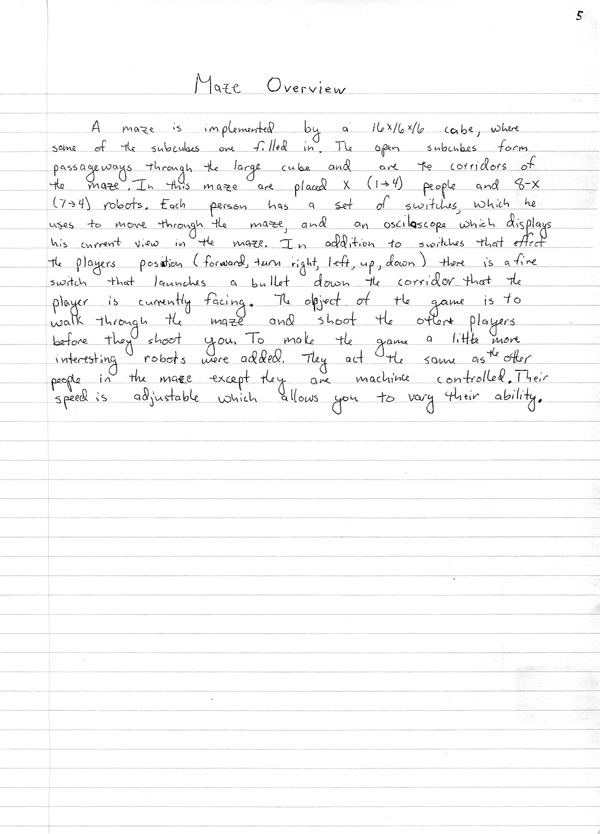 5
Maze Overview
A maze is implemented by a 16x16x16 cube, where
some of the subcubes are filled in. The open subcubes form
passageways through the large cube and are the corridors of
the maze. In this maze are placed X (1→4) people and 8-X
(7→4) robots. Each person has a set of switches, which he
uses to move through the maze, and an osciloscope which displays
his current view in the maze. In addition to switches that effect
the players position (forward, turn right, left, up, down) there is a fire
switch that launches a bullet down the corridor that the
player is currently facing. The object of the game is to
walk through the maze and shoot the other players
before they shoot you. To make the game a little more
interesting robots were added. They act the same as the other
people in the maze except they are machine controlled. Their
speed is adjustable which allows you to vary their ability.